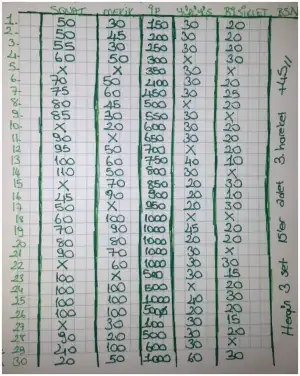 SQUAT MEKİK İP
1. 50 30 150 30 20
2. 50 45 200 30 20
3. 55 30 250 30 20
4. 60 50 30 X
5. X X 350 30 X
6. 70 50 400 30 20
7. 75 60 450 30 25
8. 80 45 500 X 20
9. 85 30 550 30 X
10. X 20 600 30 20
11. 90 X 650 30 20
12. 95 50 700 X 20
13. 100 60 750 40 10
14. 110 50 800 30 X
15. X 70 850 20 30
16. 45 X 900 20 30
17. 50 X 950 20 30
18. 60 100 1000 X X
19. 70 90 1000 45 20
20. 80 80 1000 20 20
21. 90 70 1000 30 X
22. X 60 1000 30 30
23. 100 X 500 30 15
24. 100 100 500 X X
25. 100 100 1000 40 20
26. 100 100 20 20
27. X 30 100 30 15
28. 90 20 500 30 20
29. 40 100 600 30 X
30 20 50 1000 60 30
Hergün 3 set 15'er adet 3 hareket